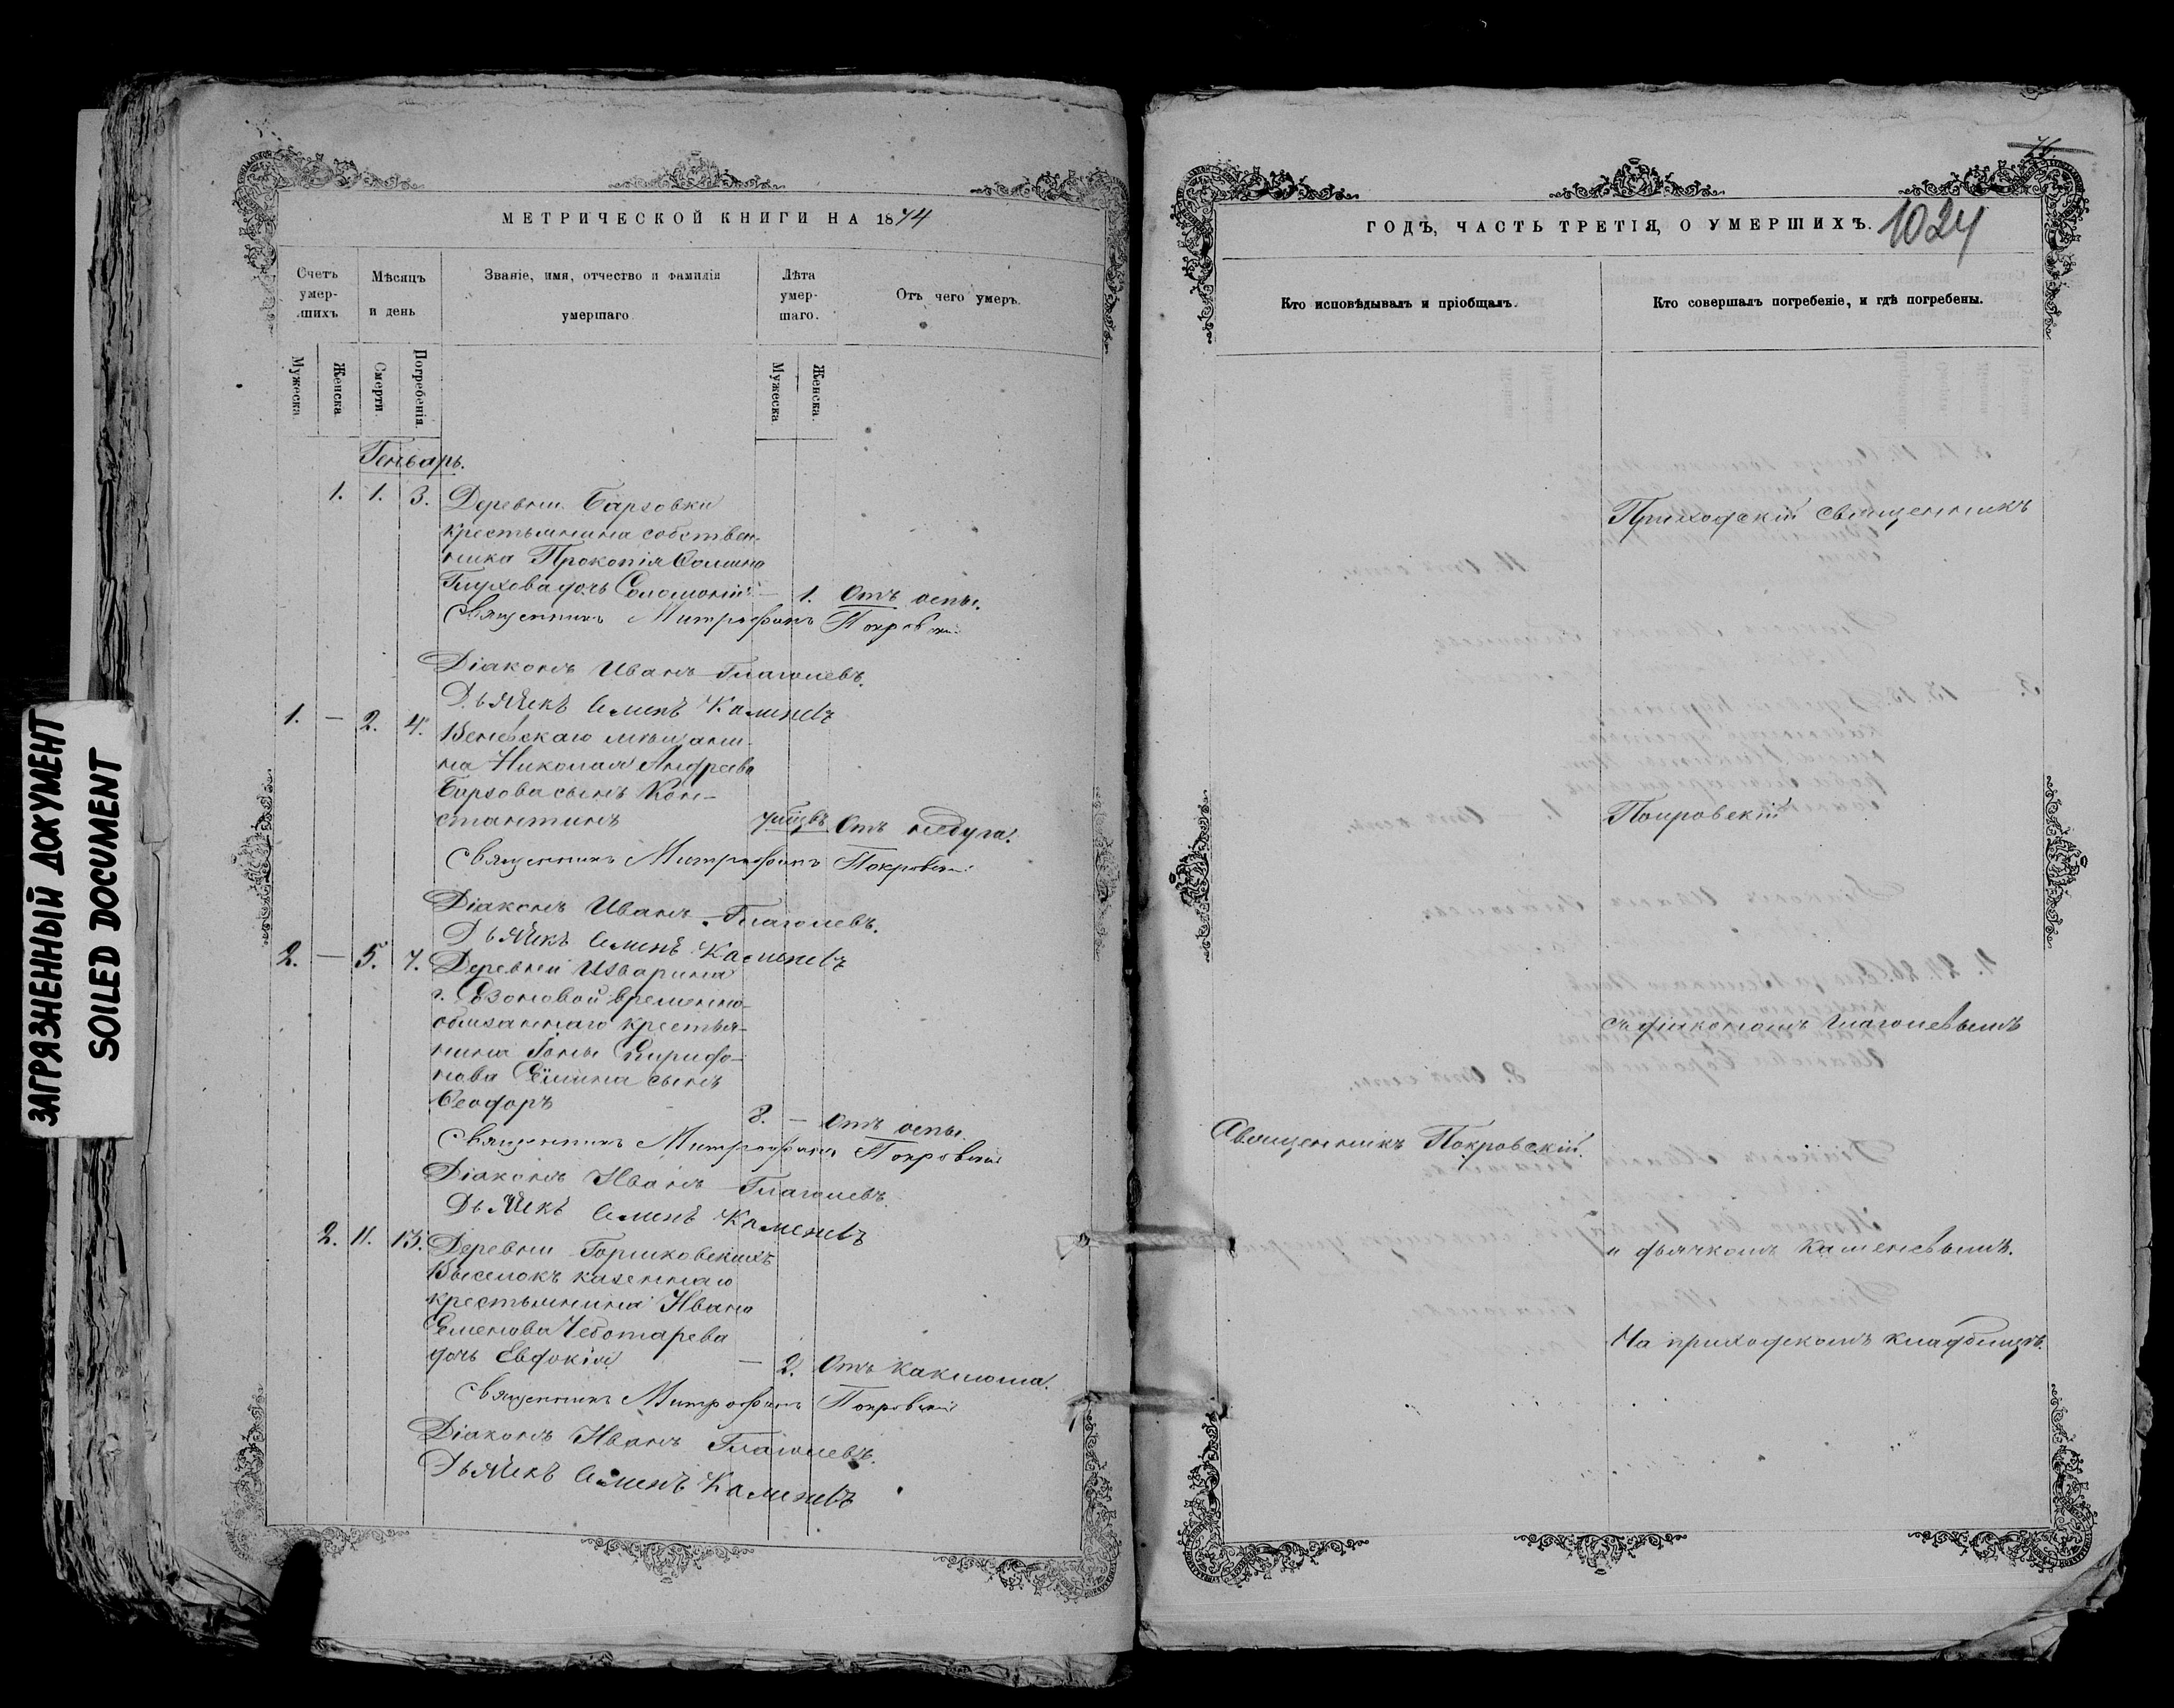 ЗАГРЯЗНЕННЫЙ ДОКУМЕНТ
SOILED DOCUMENT
МЕТРИЧЕСКОЙ КНИГИ НА 1874
Счетъ умер-шихъ
Мѣсяцъ и день
Званіе, имя, отчество и фамилія умершаго
Лѣта умер-шаго.
Отъ чего умеръ.
Мужеска
Женска
Смерти.
Погребенія.
Мужеска
Женска.
Генварь.
1. 1. 3. Деревни Барзовки
крестьянина собствен-
ника Прокопія
дочь 1. Отъ оспы.
Священникъ Митрофанъ Покровскій
Діаконъ Иванъ Глаголевъ.
Дьячекъ Семенъ Каменевъ
1. — 2. 4. Веневскаго мѣщани-
на Николая Андреева
Борзова сынъ Кон-
стантинъ Отъ недуга.
Священникъ Митрофанъ Покровскій
Діаконъ Иванъ Глаголевъ.
Дьячекъ Семенъ Каменевъ
2. — 5. 7. Деревни
временно-
обязаннаго крестья-
нина
сынъ
Ѳеодоръ 8. — Отъ оспы.
Священникъ Митрофанъ Покровскій
Діаконъ Иванъ Глаголевъ.
Дьячекъ Семенъ Каменевъ
2. 11. 13. Деревни Горшковскихъ
Выселокъ казеннаго
крестьянина Ивана
Семенова Чеботарева
дочь Евдокія — 2. Отъ каклюша.
Священникъ Митрофанъ Покровскій
Діаконъ Иванъ Глаголевъ.
Дьячекъ Семенъ Каменевъ
ГОДЪ, ЧАСТЬ ТРЕТІЯ, О УМЕРШИХЪ.
1024
Кто исповѣдывалъ и пріобщалъ.
Кто совершалъ погребеніе, и гдѣ погребены.
Приходскій священникъ
Покровскій
съ діакономъ Глаголевымъ
Священникъ Покровскій.
и дьячкомъ Каменевымъ.
На приходскомъ кладбищѣ.